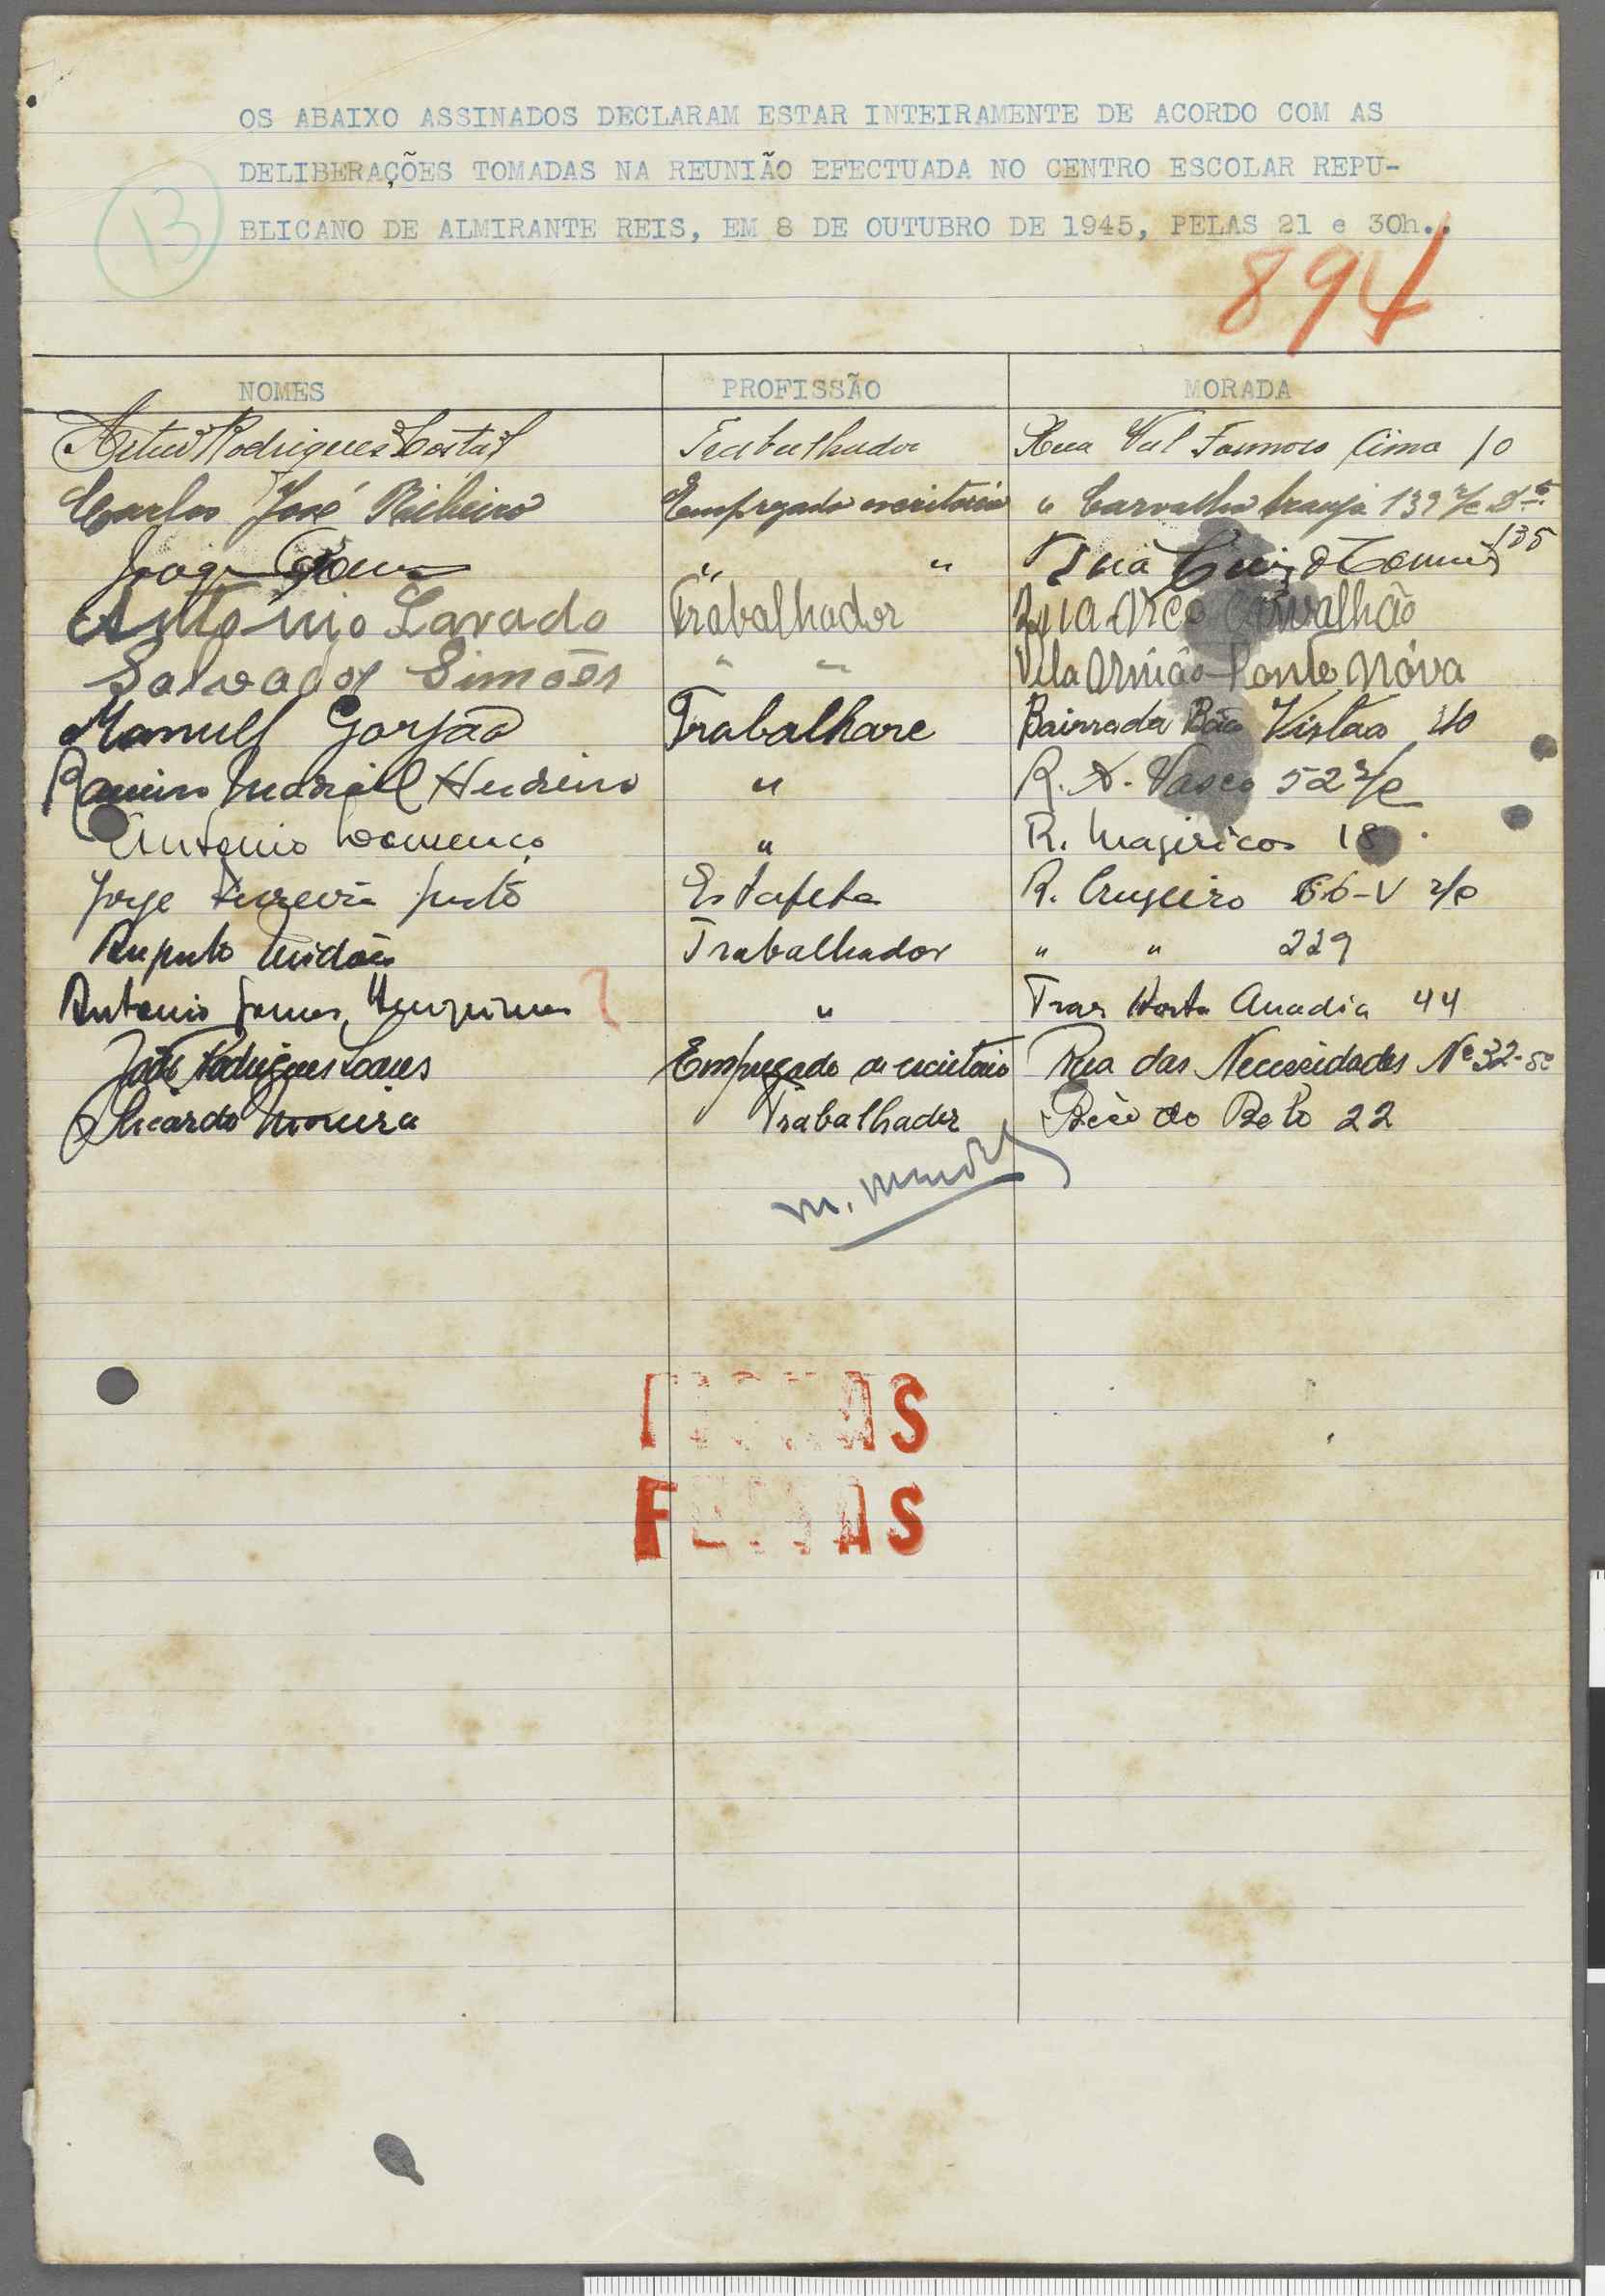 OS ABAIXO ASSINADOS DECLARAM ESTAR INTEIRAMENTE DE ACORDO COM AS
DELIBERAÇÕES TOMADAS NA REUNIÃO EFECTUADA NO CENTRO ESCOLAR REPU-
13
BLICANO DE ALMIRANTE REIS, EM 8 DE OUTUBRO DE 1945, PELAS 21 e 30h..
894
NOMES PROFISSÃO MORADA
Artur Rodrigues Costa Trabalhador Rua Val Formoso Cima 10
Carlos José Ribeiro Empregado escritório " Carvalho Araujo 139 r/c Dto
" " Rua 135
Antonio Lavado Trabalhador Rua Arco Carvalhão
Salvador Simões " " Vila União Ponte Nóva
Manuel Gorjão Trabalhare Bairrada Bõa Vistao 40
Ramiro " R. A. Vasco 52 r/c
Antonio " R. Magiricos 18
Jorge Estafeta R. Cruzeiro V r/c
Trabalhador " " 229
Antonio Gomes " Trav Horta Anadia 44
João Rodrigues Soares Empregado de escritório Rua das Necessidades Nº 32-5º
Ricardo Moreira Trabalhador do Beto 22
M. Mendes
FEITAS